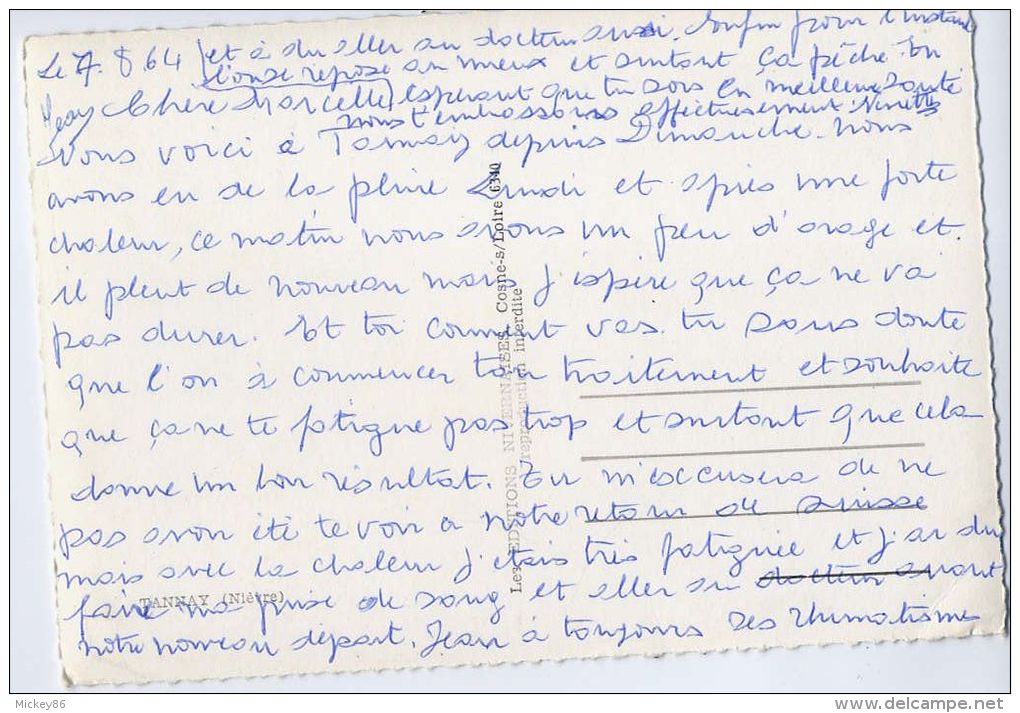 Le 7. 8 64 et à du aller au docteur aussi. Enfin pour l'instant
l'onse repose au mieux et surtout ça pêche. En
Chère Marcelle espérant que tu sois en meilleure santé
nous t'embrassons affectueusement. Ninette
Nous voici à Tannay depuis Dimanche. Nous
avons eu de la pluie Lundi et après une forte
chaleur, ce matin nous avons un peu d'orage et
il pleut de nouveau mais j'espère que ça ne va
pas durer. Et toi comment vas. tu sans doute
que l'on à commencer ton traitement et souhaite
que ça ne te fatigue pas trop et surtout que cela
donne un bon résultat. Tu m'excusera de ne
pas avoir été te voir a notre retour de Suisse
mais avec la chaleur j'etais très fatiguée et j'ai du
faire ma prise de sang et aller au docteur avant
notre nouveau départ. Jean à toujours ses rhumatismes
TANNAY (Nièvre)
Les EDITIONS NIVERNAISES, Cosne-s/Loire 6340
reproduction interdite
Mickey86
www.delcampe.net